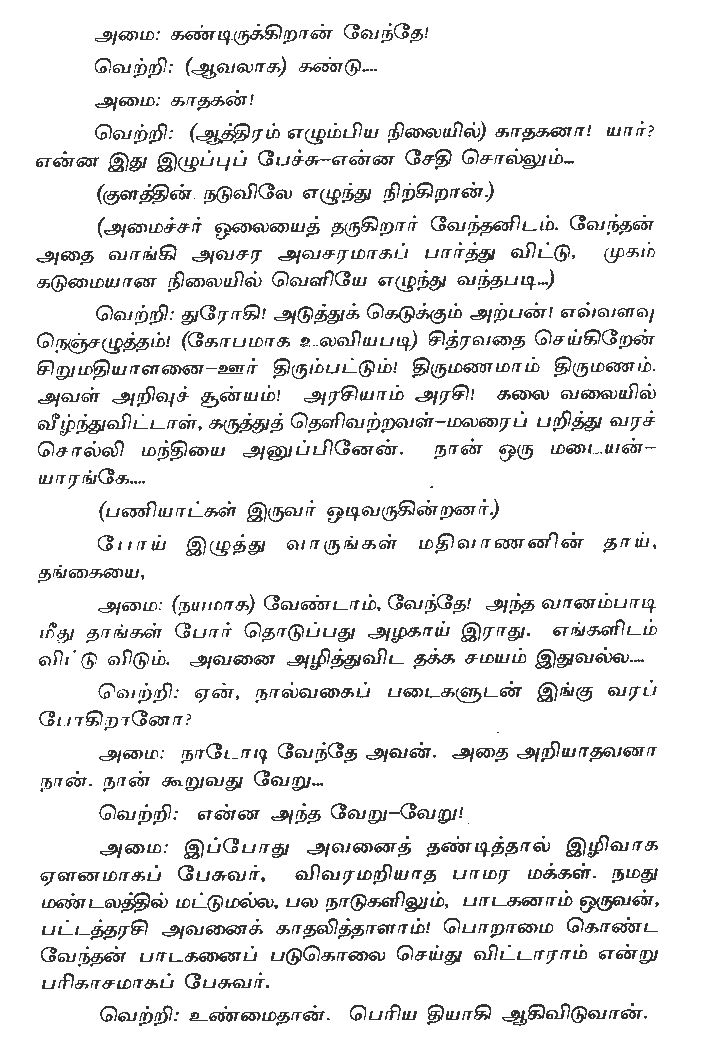 அமை: கண்டிருக்கிறான் வேந்தே!
வெற்றி: (ஆவலாக) கண்டு....
அமை: காதகன்!
வெற்றி: (ஆத்திரம் எழும்பிய நிலையில்) காதகனா! யார்?
என்ன இது இழுப்புப் பேச்சு-என்ன சேதி சொல்லும்...
(குளத்தின் நடுவிலே எழுந்து நிற்கிறான்.)
(அமைச்சர் ஓலையைத் தருகிறார் வேந்தனிடம். வேந்தன்
அதை வாங்கி அவசர அவசரமாகப் பார்த்து விட்டு, முகம்
கடுமையான நிலையில் வெளியே எழுந்து வந்தபடி...)
வெற்றி: துரோகி! அடுத்துக் கெடுக்கும் அற்பன்! எவ்வளவு
நெஞ்சழுத்தம்! (கோபமாக உலவியபடி) சித்ரவதை செய்கிறேன்
சிறுமதியாளனை-ஊர் திரும்பட்டும்! திருமணமாம் திருமணம்.
அவள் அறிவுச் சூன்யம்! அரசியாம் அரசி! கலை வலையில்
வீழ்ந்துவிட்டாள், கருத்துத் தெளிவற்றவள்-மலரைப் பறித்து வரச்
சொல்லி மந்தியை அனுப்பினேன். நான் ஒரு மடையன்-
யாரங்கே....
(பணியாட்கள் இருவர் ஓடிவருகின்றனர்.)
போய் இழுத்து வாருங்கள் மதிவாணனின் தாய்,
தங்கையை,
அமை: (நயமாக) வேண்டாம், வேந்தே! அந்த வானம்பாடி
மீது தாங்கள் போர் தொடுப்பது அழகாய் இராது. எங்களிடம்
விட்டு விடும். அவனை அழித்துவிட தக்க சமயம் இதுவல்ல....
வெற்றி: ஏன், நால்வகைப் படைகளுடன் இங்கு வரப்
போகிறானோ?
அமை: நாடோடி வேந்தே அவன். அதை அறியாதவனா
நான். நான் கூறுவது வேறு...
வெற்றி: என்ன அந்த வேறு-வேறு!
அமை: இப்போது அவனைத் தண்டித்தால் இழிவாக
ஏளனமாகப் பேசுவர், விவரமறியாத பாமர மக்கள். நமது
மண்டலத்தில் மட்டுமல்ல, பல நாடுகளிலும், பாடகனாம் ஒருவன்,
பட்டத்தரசி அவனைக் காதலித்தாளாம்! பொறாமை கொண்ட
வேந்தன் பாடகனைப் படுகொலை செய்து விட்டாராம் என்று
பரிகாசமாகப் பேசுவர்.
வெற்றி: உண்மைதான். பெரிய தியாகி ஆகிவிடுவான்.